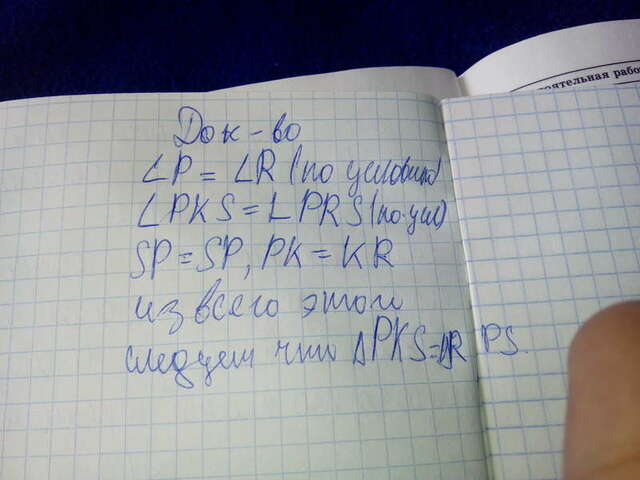 оятельная рабо
Док-во
∠P = ∠R (по условию)
∠PKS = ∠PRS (по усл)
SP = SP, PK = KR
из всего этого
следует что ΔPKS = ΔR PS.